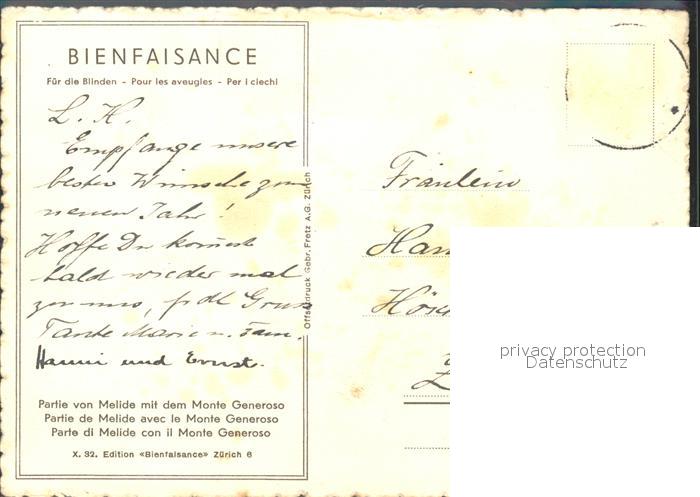 BIENFAISANCE
Für die Blinden - Pour les aveugles - Per i ciechi
L. H.
Empfange unsere
besten Wünsche zum
neuen Jahr!
Hoffe Du kommst
bald wieder mal
zu uns, frdl Gruss
Tante Marie u. Fam.
Hanni und Ernst.
Partie von Melide mit dem Monte Generoso
Partie de Melide avec le Monte Generoso
Parte di Melide con il Monte Generoso
X. 32. Edition «Bienfaisance» Zürich 6
Offsetdruck Gebr. Fretz A.G. Zürich
Fräulein
Han
privacy protection
Datenschutz